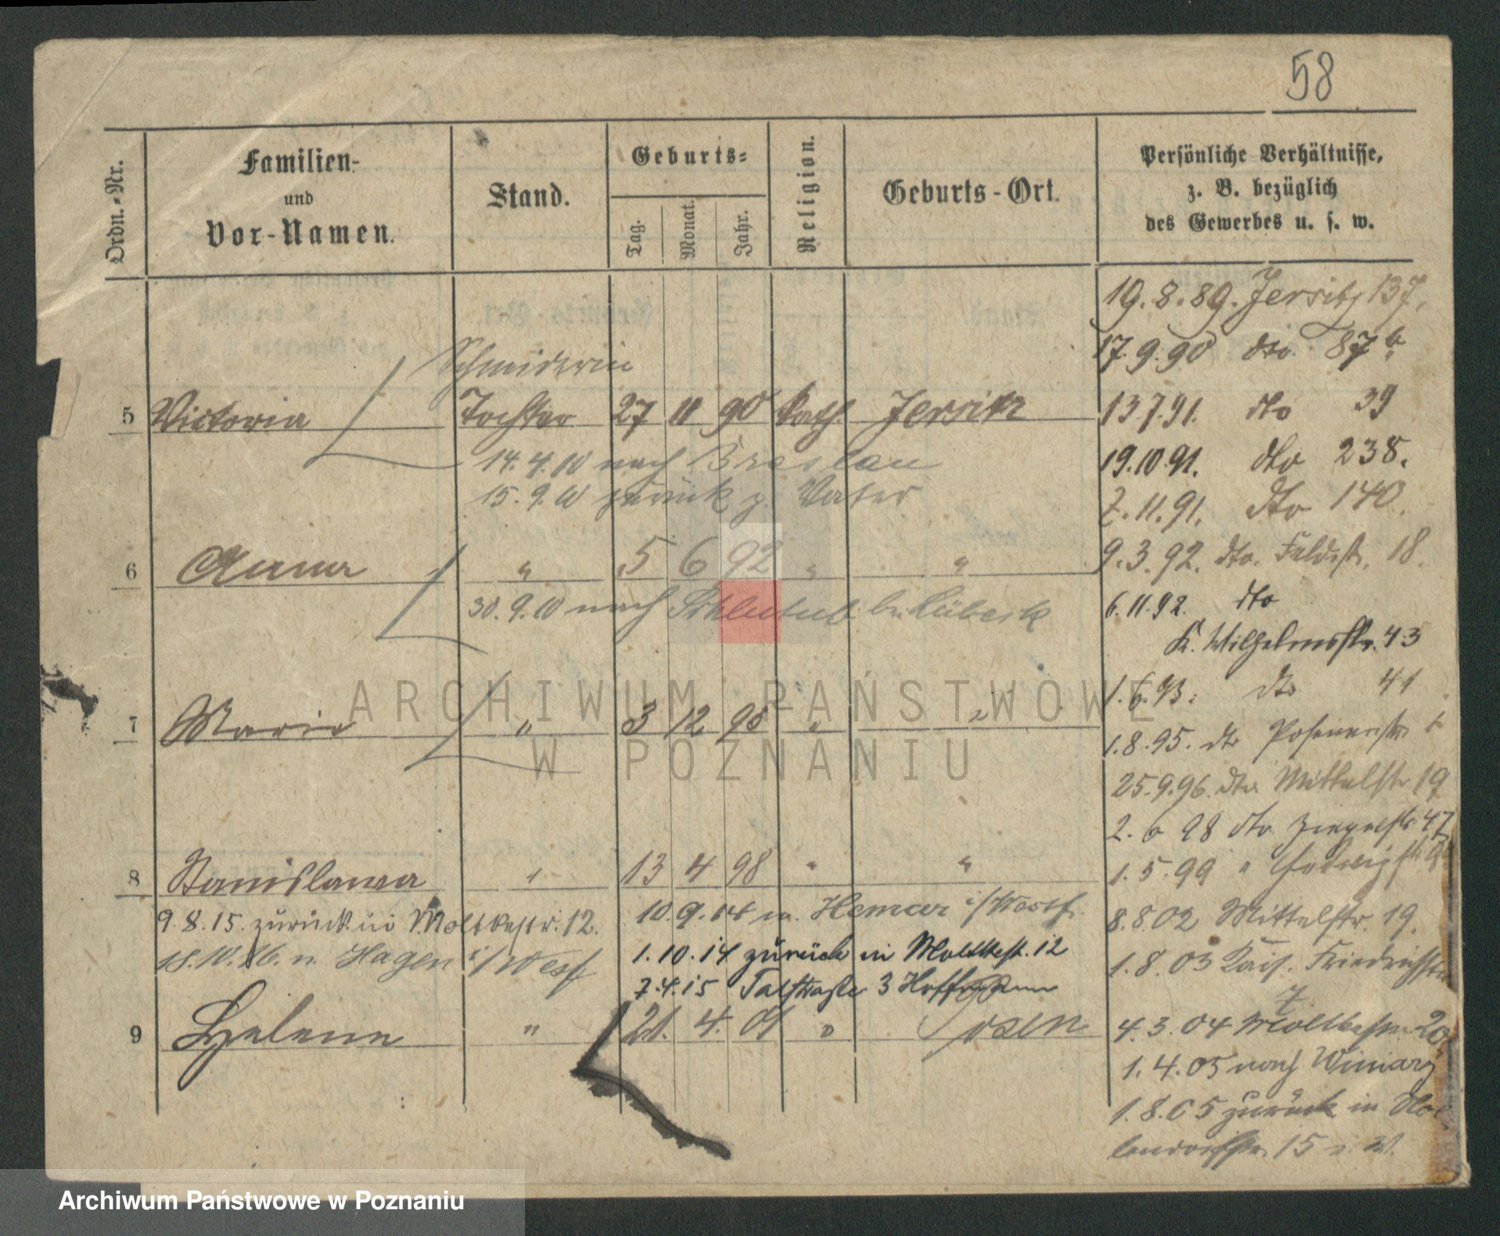 58
Ordn.-Nr.
Familien-
und
Vor-Namen.
Stand.
Geburts-
Tag.
Monat.
Jahr.
Religion.
Geburts-Ort.
Persönliche Verhältnisse,
z. B. bezüglich
des Gewerbes u. s. w.
19.8.89. Jersitz 137.
17.9.90 dto 87
Schneiderin
5 Victoria Tochter 27 11 90 kath. Jersitz
13.7.91. dto 39
14.4.10 nach Breslau
19.10.91. dto 238.
15.9.10 zurück z. Vater
7.11.91. dto 140.
6 Anna " 5 6 92 " "
9.3.92. dto. Feldstr. 18.
30.9.10 nach
6.11.92. dto
K. Wilhelmstr. 43
1.6.93. dto 41
7 Maria " 3 12 95 " "
1.8.95. dto Posenerstr.
25.9.96. dto Mittelstr 19
2. 6 98 dto 47
8 Stanislawa " 13 4 98 " "
1.5.99 "
9.8.15. zurück in Moltkestr. 12.
10.9.14 n. Hemer i/Westf.
8.8.02 Mittelstr. 19.
18.10.16. n. Hagen i/Westf
1.10.14 zurück in Moltkestr. 12
1.8.03 Kais. Friedrichstr
7.4.15 Talstraße 3 Hoffmann
7.
9 Helene " 21. 4. 01 " Posen
4.3.04 Moltkestr. 20
1.4.05 nach
1.8.05 zurück in
15
ARCHIWUM PAŃSTWOWE
W POZNANIU
Archiwum Państwowe w Poznaniu